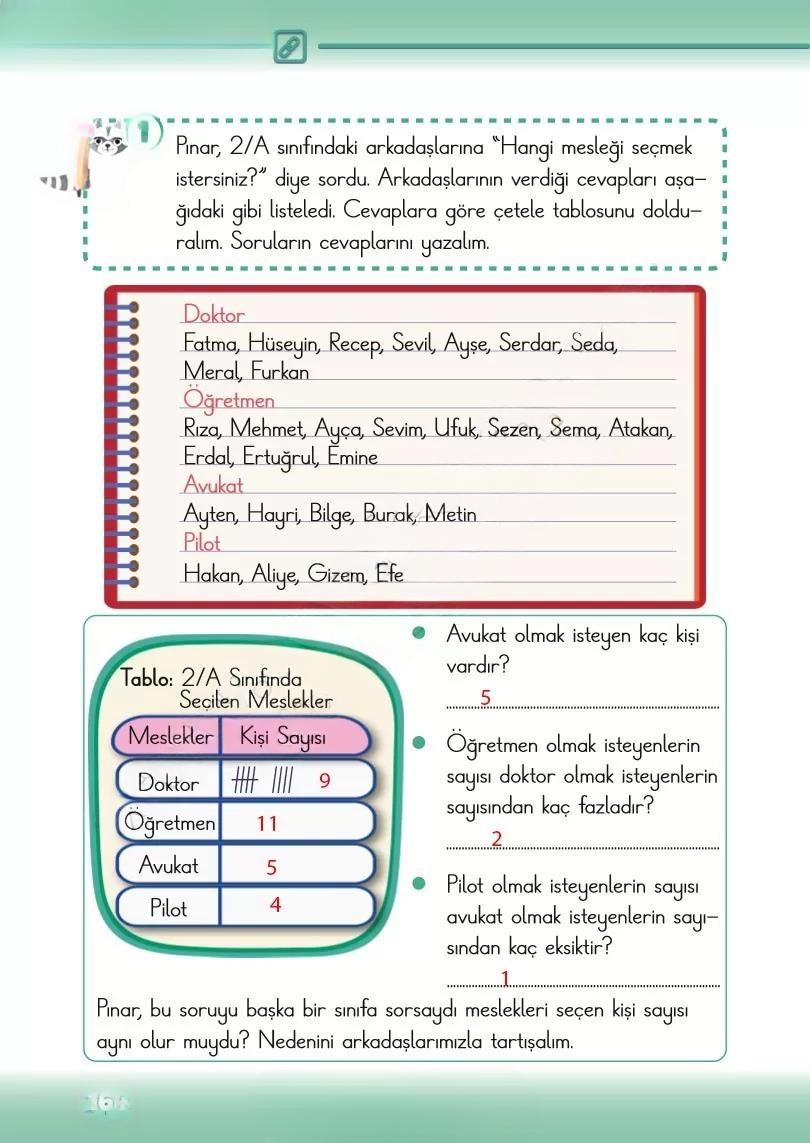 1
Pınar, 2/A sınıfındaki arkadaşlarına “Hangi mesleği seçmek
istersiniz?” diye sordu. Arkadaşlarının verdiği cevapları aşa-
ğıdaki gibi listeledi. Cevaplara göre çetele tablosunu doldu-
ralım. Soruların cevaplarını yazalım.
Doktor
Fatma, Hüseyin, Recep, Sevil, Ayşe, Serdar, Seda,
Meral, Furkan
Öğretmen
Rıza, Mehmet, Ayça, Sevim, Ufuk, Sezen, Sema, Atakan,
Erdal, Ertuğrul, Emine
Avukat
Ayten, Hayri, Bilge, Burak, Metin
Pilot
Hakan, Aliye, Gizem, Efe
Tablo: 2/A Sınıfında
Seçilen Meslekler
Meslekler Kişi Sayısı
Doktor 9
Öğretmen 11
Avukat 5
Pilot 4
Avukat olmak isteyen kaç kişi
vardır?
5
Öğretmen olmak isteyenlerin
sayısı doktor olmak isteyenlerin
sayısından kaç fazladır?
2
Pilot olmak isteyenlerin sayısı
avukat olmak isteyenlerin sayı-
sından kaç eksiktir?
1
Pınar, bu soruyu başka bir sınıfa sorsaydı meslekleri seçen kişi sayısı
aynı olur muydu? Nedenini arkadaşlarımızla tartışalım.